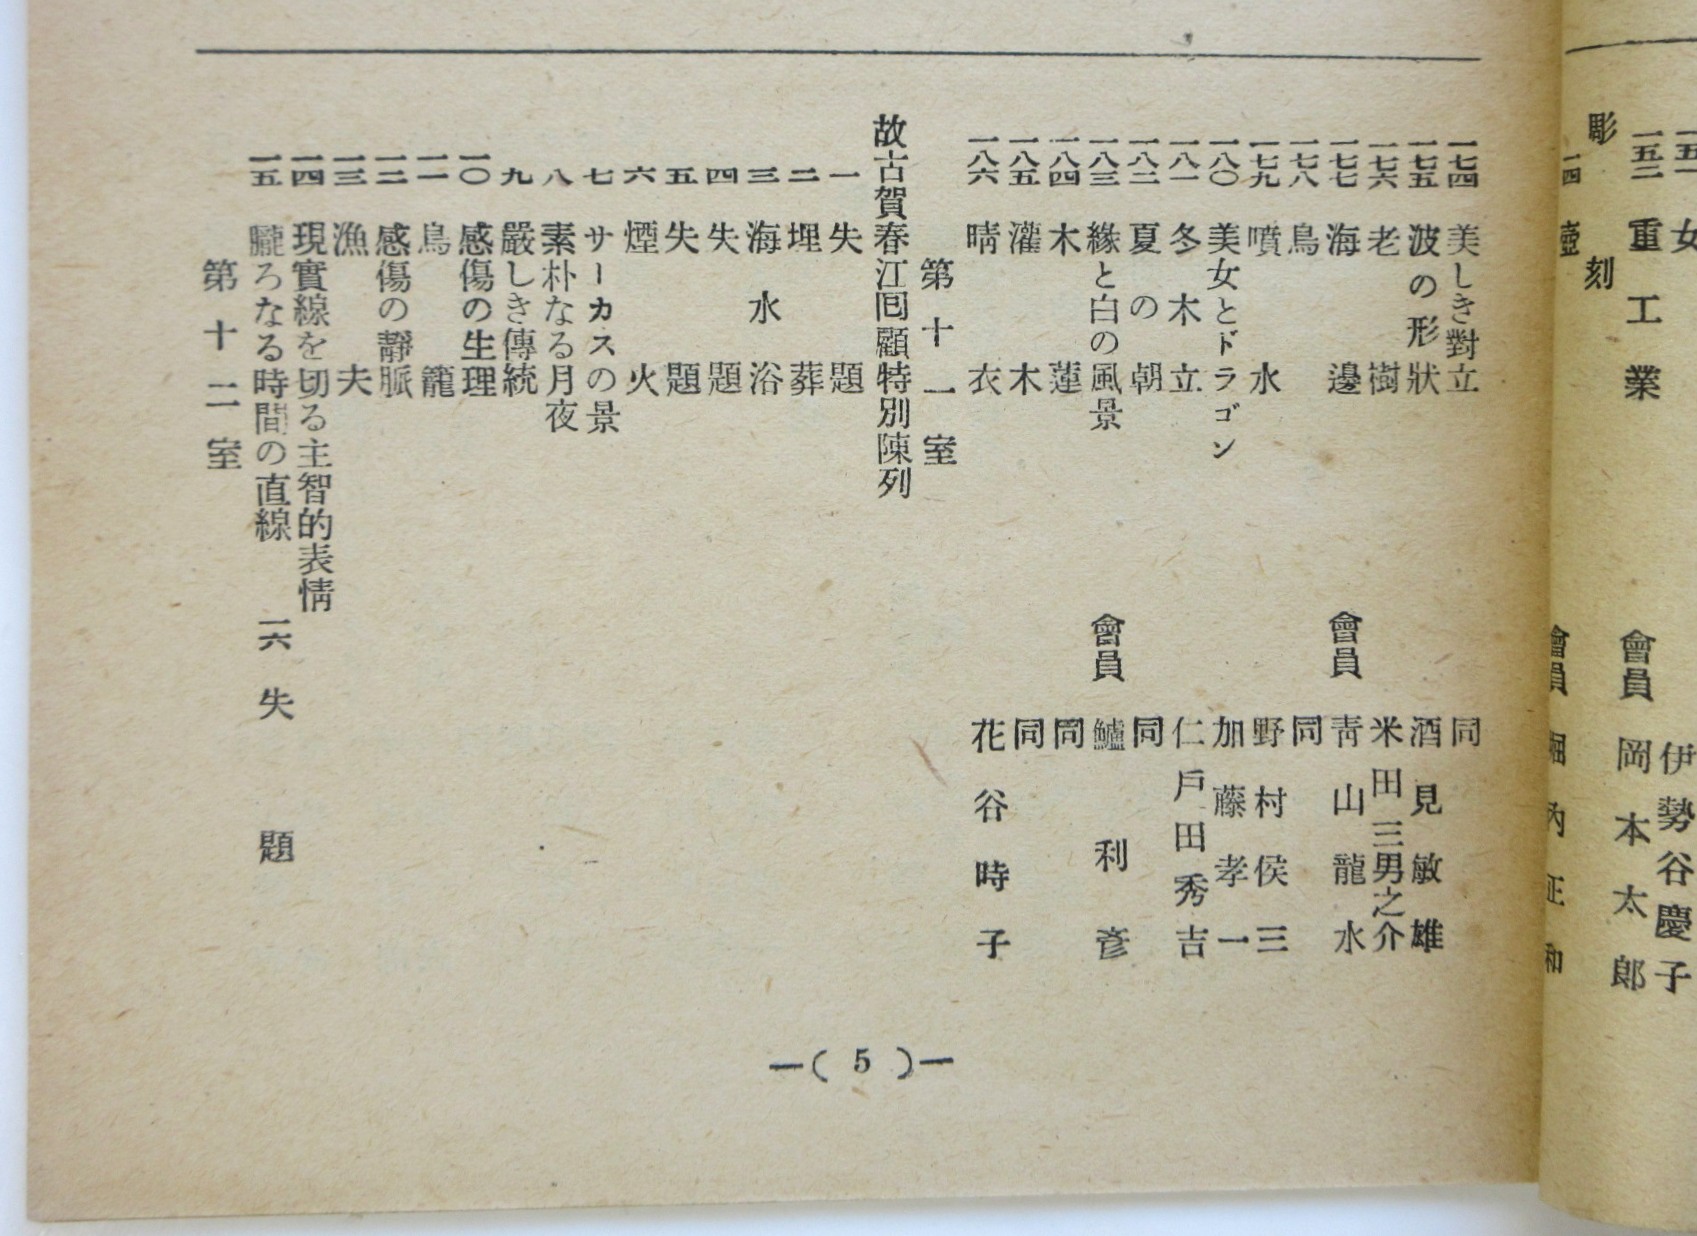 一五一 女 伊勢谷慶子
一五二 重工業 會員 岡本太郎
彫刻
一四 壺 會員 堀內正和
一七四 美しき對立 同
一七五 波の形狀 酒見敏雄
一七六 老樹 米田三男之介
一七七 海邊 會員 靑山龍水
一七八 鳥 同
一七九 噴水 野村侯三
一八〇 美女とドラゴン 加藤孝一
一八一 冬木立 仁戶田秀吉
一八二 夏の朝 同
一八三 緣と白の風景 會員 鱸利彥
一八四 木蓮 同
一八五 灌木 同
一八六 晴衣 花谷時子
第十一室
故古賀春江囘顧特別陳列
一 失題
二 埋葬
三 海水浴
四 失題
五 失題
六 煙火
七 サーカスの景
八 素朴なる月夜
九 嚴しき傳統
一〇 感傷の生理
一一 鳥籠
一二 感傷の靜脈
一三 漁夫
一四 現實線を切る主智的表情
一五 朧ろなる時間の直線 一六 失題
第十二室
—( 5 )—